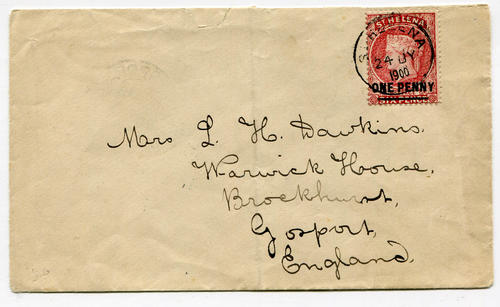 ST HELENA
ST. HELENA
24 JY
1900
ONE PENNY
Mrs L. H. Dawkins.
Warwick House,
Brockhurst,
Gosport,
England.